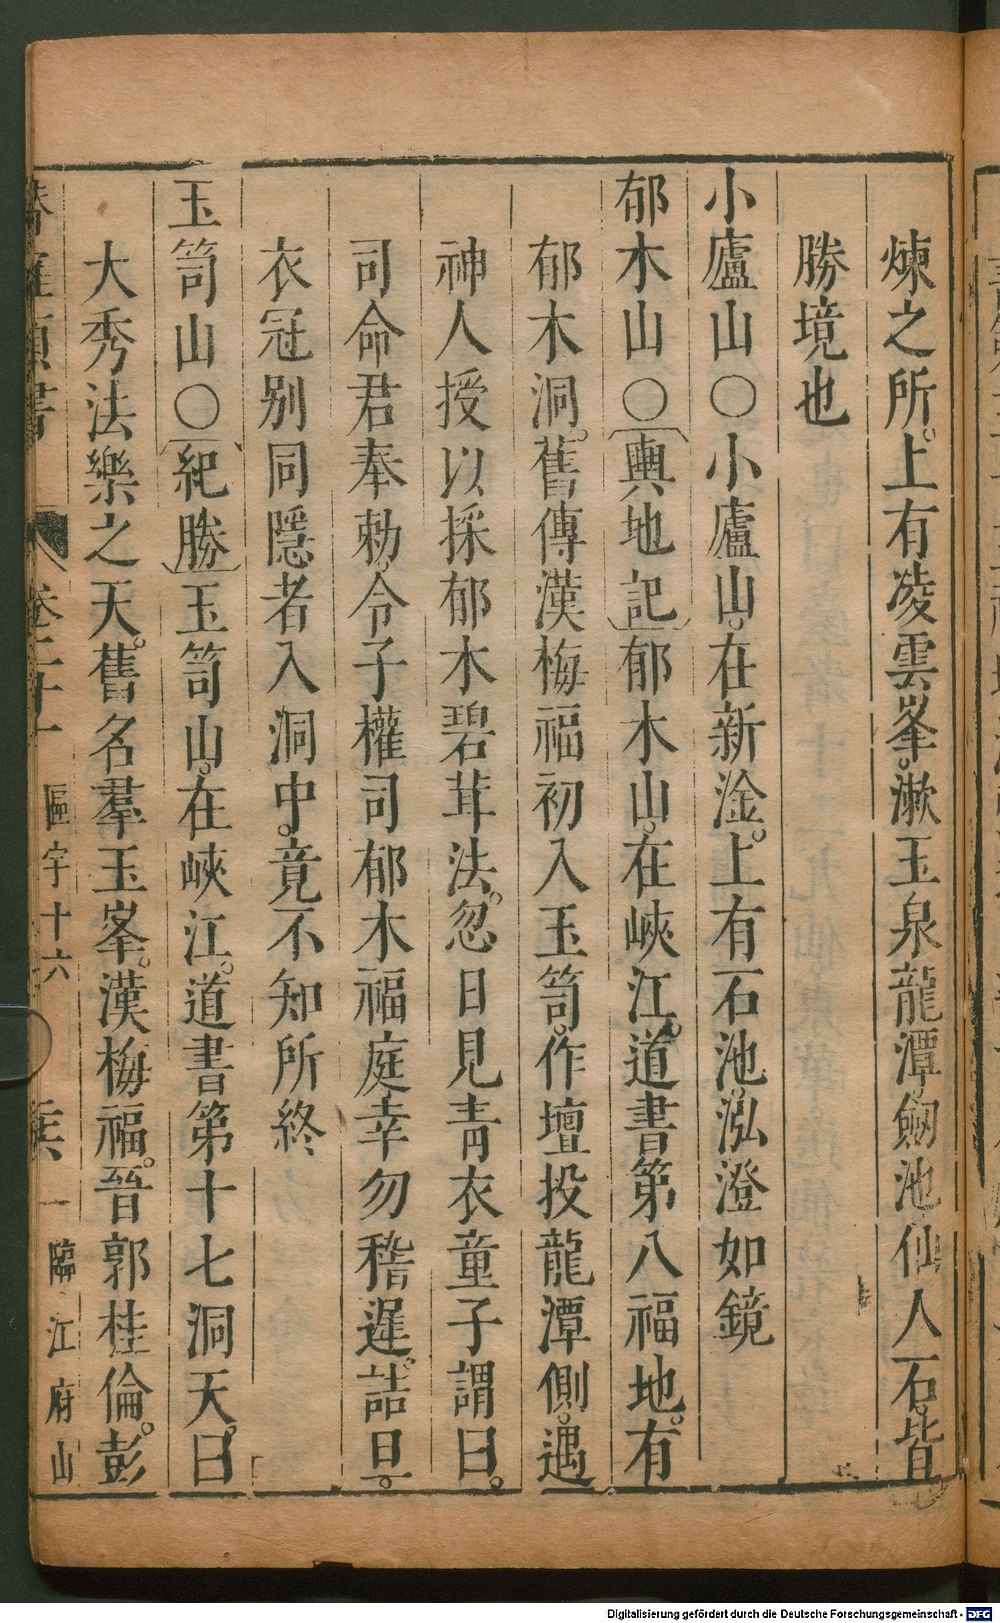 煉之所。上有凌雲峯。漱玉泉龍潭劒池仙人石。皆
勝境也
小廬山○小廬山。在新淦。上有石池。泓澄如鏡
郁木山○輿地記郁木山。在峽江。道書第八福地。有
郁木洞。舊傳漢梅福初入玉笥。作壇投龍潭側。遇
神人授以採郁木碧茸法。忽日見青衣童子謂曰。
司命君奉勅。令子權司郁木福庭。幸勿稽遲。詰旦。
衣冠別同隱者入洞中。竟不知所終
玉笥山○紀勝玉笥山。在峽江。道書第十七洞天。曰
大秀法樂之天。舊名羣玉峯。漢梅福。晉郭桂倫。彭
區宇十六
一
臨江府山
Digitalisierung gefördert durch die Deutsche Forschungsgemeinschaft - DFG